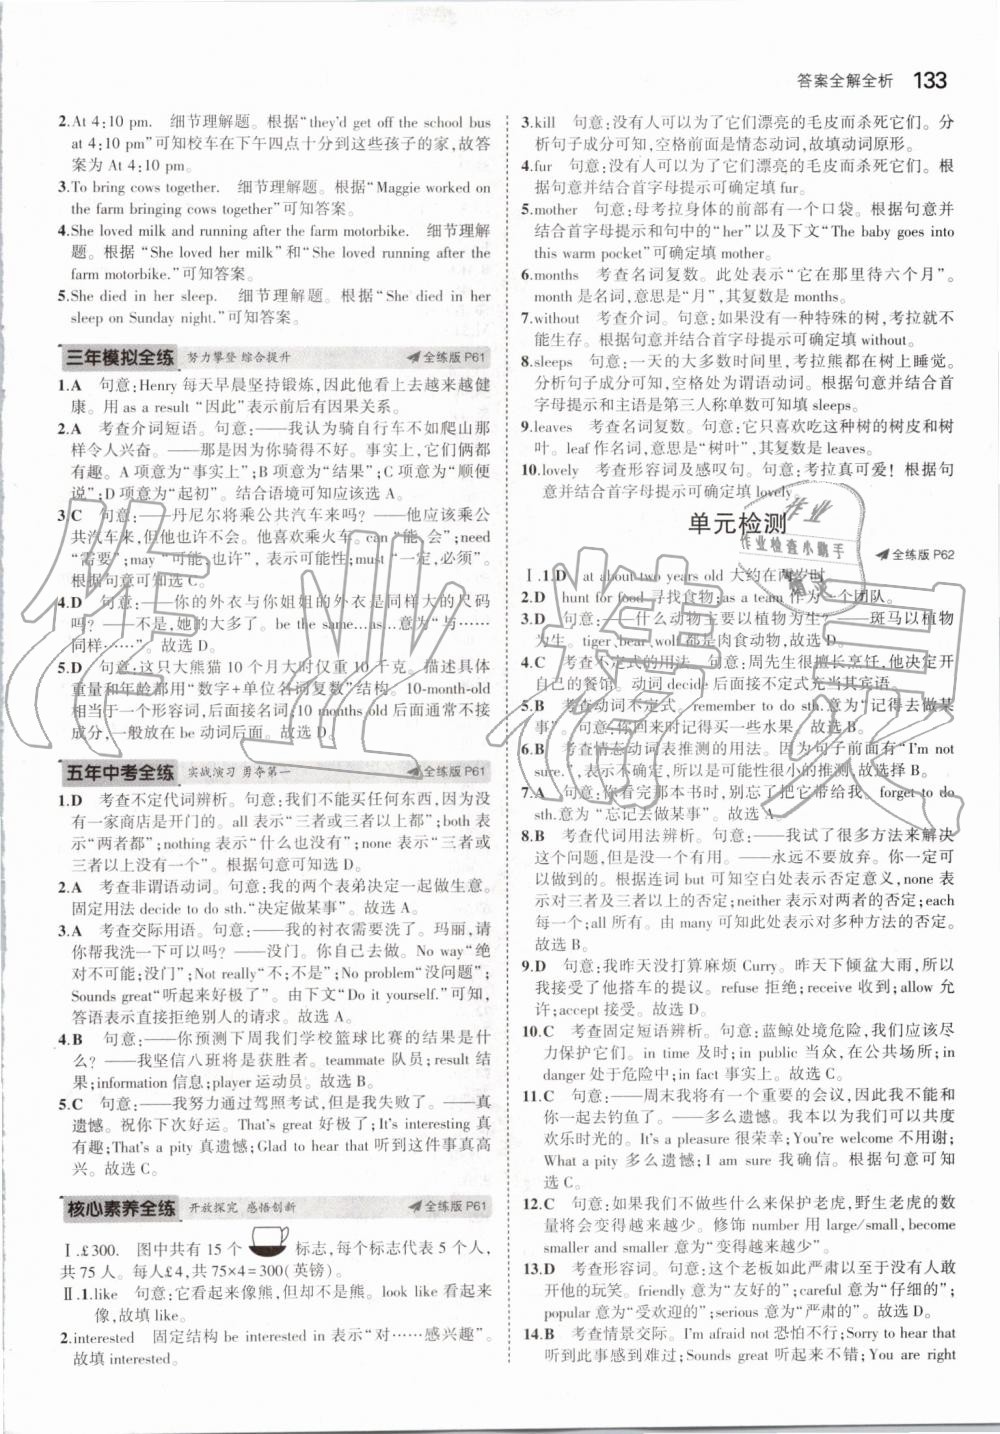 答案全解全析 133
2.At 4:10 pm. 细节理解题。根据“they'd get off the school bus
at 4:10 pm.”可知校车在下午四点十分到这些孩子的家,故答
案为 At 4:10 pm.。
3.To bring cows together. 细节理解题。根据“Maggie worked on
the farm bringing cows together”可知答案。
4.She loved milk and running after the farm motorbike. 细节理解
题。根据 “She loved her milk”和“She loved running after the
farm motorbike.”可知答案。
5.She died in her sleep. 细节理解题。根据“She died in her
sleep on Sunday night.”可知答案。
三年模拟全练 努力攀登 综合提升 全练版 P61
1.A 句意:Henry 每天早晨坚持锻炼,因此他看上去越来越健
康。用 as a result “因此”表示前后有因果关系。
2.A 考查介词短语。句意:——我认为骑自行车不如爬山那
样令人兴奋。——那是因为你骑得不好。事实上,它们俩都
有趣。A 项意为“事实上”;B 项意为“结果”;C 项意为“顺便
说”;D 项意为“起初”。结合语境可知应该选 A。
3.C 句意:——丹尼尔将乘公共汽车来吗?——他应该乘公
共汽车来,但他也许不会。他喜欢乘火车。can“能,会”;need
“需要”;may“可能,也许”,表示可能性;must“一定,必须”。
根据句意可知选 C。
4.D 句意:——你的外衣与你姐姐的外衣是同样大的尺码
吗?——不是,她的大多了。be the same...as...意为“与……
同样……”。故选 D。
5.D 句意:这只大熊猫 10 个月大时仅重 10 千克。描述具体
重量和年龄都用“数字+单位名词复数”结构。10-month-old
相当于一个形容词,后面接名词,10 months old 后面通常不接
成分,一般放在 be 动词后面。故选 D。
五年中考全练 实战演习 勇夺第一 全练版 P61
1.D 考查不定代词辨析。句意:我们不能买任何东西,因为没
有一家商店是开门的。all 表示“三者或三者以上都”;both 表
示“两者都”;nothing 表示“什么也没有”;none 表示“三者或
三者以上没有一个”。根据句意可知选 D。
2.A 考查非谓语动词。句意:我的两个表弟决定一起做生意。
固定用法 decide to do sth.“决定做某事”。故选 A。
3.A 考查交际用语。句意:——我的衬衣需要洗了。玛丽,请
你帮我洗一下可以吗?——没门。你自己去做。No way“绝
对不可能;没门”;Not really“不;不是”;No problem“没问题”;
Sounds great“听起来好极了”。由下文“Do it yourself.”可知,
答语表示直接拒绝别人的请求。故选 A。
4.B 句意:——你预测下周我们学校篮球比赛的结果是什
么?——我坚信八班将是获胜者。teammate 队员;result 结
果;information 信息;player 运动员。故选 B。
5.C 句意:——我努力通过驾照考试,但是我失败了。——真
遗憾。祝你下次好运。That's great 好极了;It's interesting 真
有趣;That's a pity 真遗憾;Glad to hear that 听到这件事真高
兴。故选 C。
核心素养全练 开放探究 感悟创新 全练版 P61
Ⅰ.£300. 图中共有 15 个 标志,每个标志代表 5 个人,
共 75 人。每人£4,共 75×4=300(英镑)。
Ⅱ.1.like 句意:它看起来像熊,但却不是熊。look like 看起来
像,故填 like。
2.interested 固定结构 be interested in 表示“对……感兴趣”。
故填 interested。
3.kill 句意:没有人可以为了它们漂亮的毛皮而杀死它们。分
析句子成分可知,空格前面是情态动词,故填动词原形。
4.fur 句意:没有人可以为了它们漂亮的毛皮而杀死它们。根
据句意并结合首字母提示可确定填 fur。
5.mother 句意:母考拉身体的前部有一个口袋。根据句意并
结合首字母提示和句中的“her”以及下文“The baby goes into
this warm pocket”可确定填 mother。
6.months 考查名词复数。此处表示“它在那里待六个月”。
month 是名词,意思是“月”,其复数是 months。
7.without 考查介词。句意:如果没有一种特殊的树,考拉就不
能生存。根据句意并结合首字母提示可确定填 without。
8.sleeps 句意:一天的大多数时间里,考拉熊都在树上睡觉。
分析句子成分可知,空格处为谓语动词。根据句意并结合首
字母提示和主语是第三人称单数可知填 sleeps。
9.leaves 考查名词复数。句意:它只喜欢吃这种树的树皮和树
叶。leaf 作名词,意思是“树叶”,其复数是 leaves。
10.lovely 考查形容词及感叹句。句意:考拉真可爱!根据句
意并结合首字母提示可确定填 lovely。
单元检测
全练版 P62
Ⅰ.1.D at about two years old 大约在两岁时
2.D hunt for food 寻找食物;as a team 作为一个团队。
3.D 句意:——什么动物主要以植物为生?——斑马以植物
为生。tiger,bear,wolf 都是肉食动物,故选 D。
4.C 考查不定式的用法。句意:周先生很擅长烹饪,他决定开
自己的餐馆。动词 decide 后面接不定式充当其宾语。
5.B 考查动词不定式。remember to do sth.意为“记得去做某
事”。句意:你回来时记得买一些水果。故选 B。
6.B 考查情态动词表推测的用法。因为句子前面有“I'm not
sure.”,所以表示一种可能性很小的推测,故选 B。
7.A 句意:你看完那本书时,别忘了把它带给我。forget to do
sth.意为 “忘记去做某事”。故选 A。
8.B 考查代词用法辨析。句意:——我试了很多方法来解决
这个问题,但没有一个有用。——永远不要放弃。你一定可
以做到的。根据连词 but 可知空白处表示否定意义,none 表
示对三者及三者以上的否定;neither 表示对两者的否定;each
每一个;all 所有。由 many 可知此处表示对多种方法的否定。
故选 B。
9.D 句意:我昨天没打算麻烦 Curry。昨天下倾盆大雨,所以
我接受了他搭车的提议。refuse 拒绝;receive 收到;allow 允
许;accept 接受。故选 D。
10.C 考查固定短语辨析。句意:蓝鲸处境危险,我们应该尽
力保护它们。in time 及时;in public 当众,在公共场所;in
danger 处于危险中;in fact 事实上。故选 C。
11.C 句意:——周末我将有一个重要的会议,因此我不能和
你一起去钓鱼了。——多么遗憾。我本以为我们可以共度
欢乐时光的。It's a pleasure 很荣幸;You're welcome 不用谢;
What a pity 多么遗憾;Thanks a lot 多谢。根据句意可知
选 C。
12.C 句意:如果我们不做些什么来保护老虎,野生老虎的数
量将会变得越来越少。修饰 number 用 large/small,become
smaller and smaller 意为“变得越来越少”。
13.D 考查形容词。句意:这个老板如此严肃以至于没有人敢
开他的玩笑。friendly 意为“友好的”;careful 意为“仔细的”;
popular 意为“受欢迎的”;serious 意为“严肃的”。故选 D。
14.B 考查情景交际。I'm afraid not 恐怕不行;Sorry to hear that
听到此事感到难过;Sounds great 听起来不错;You are right